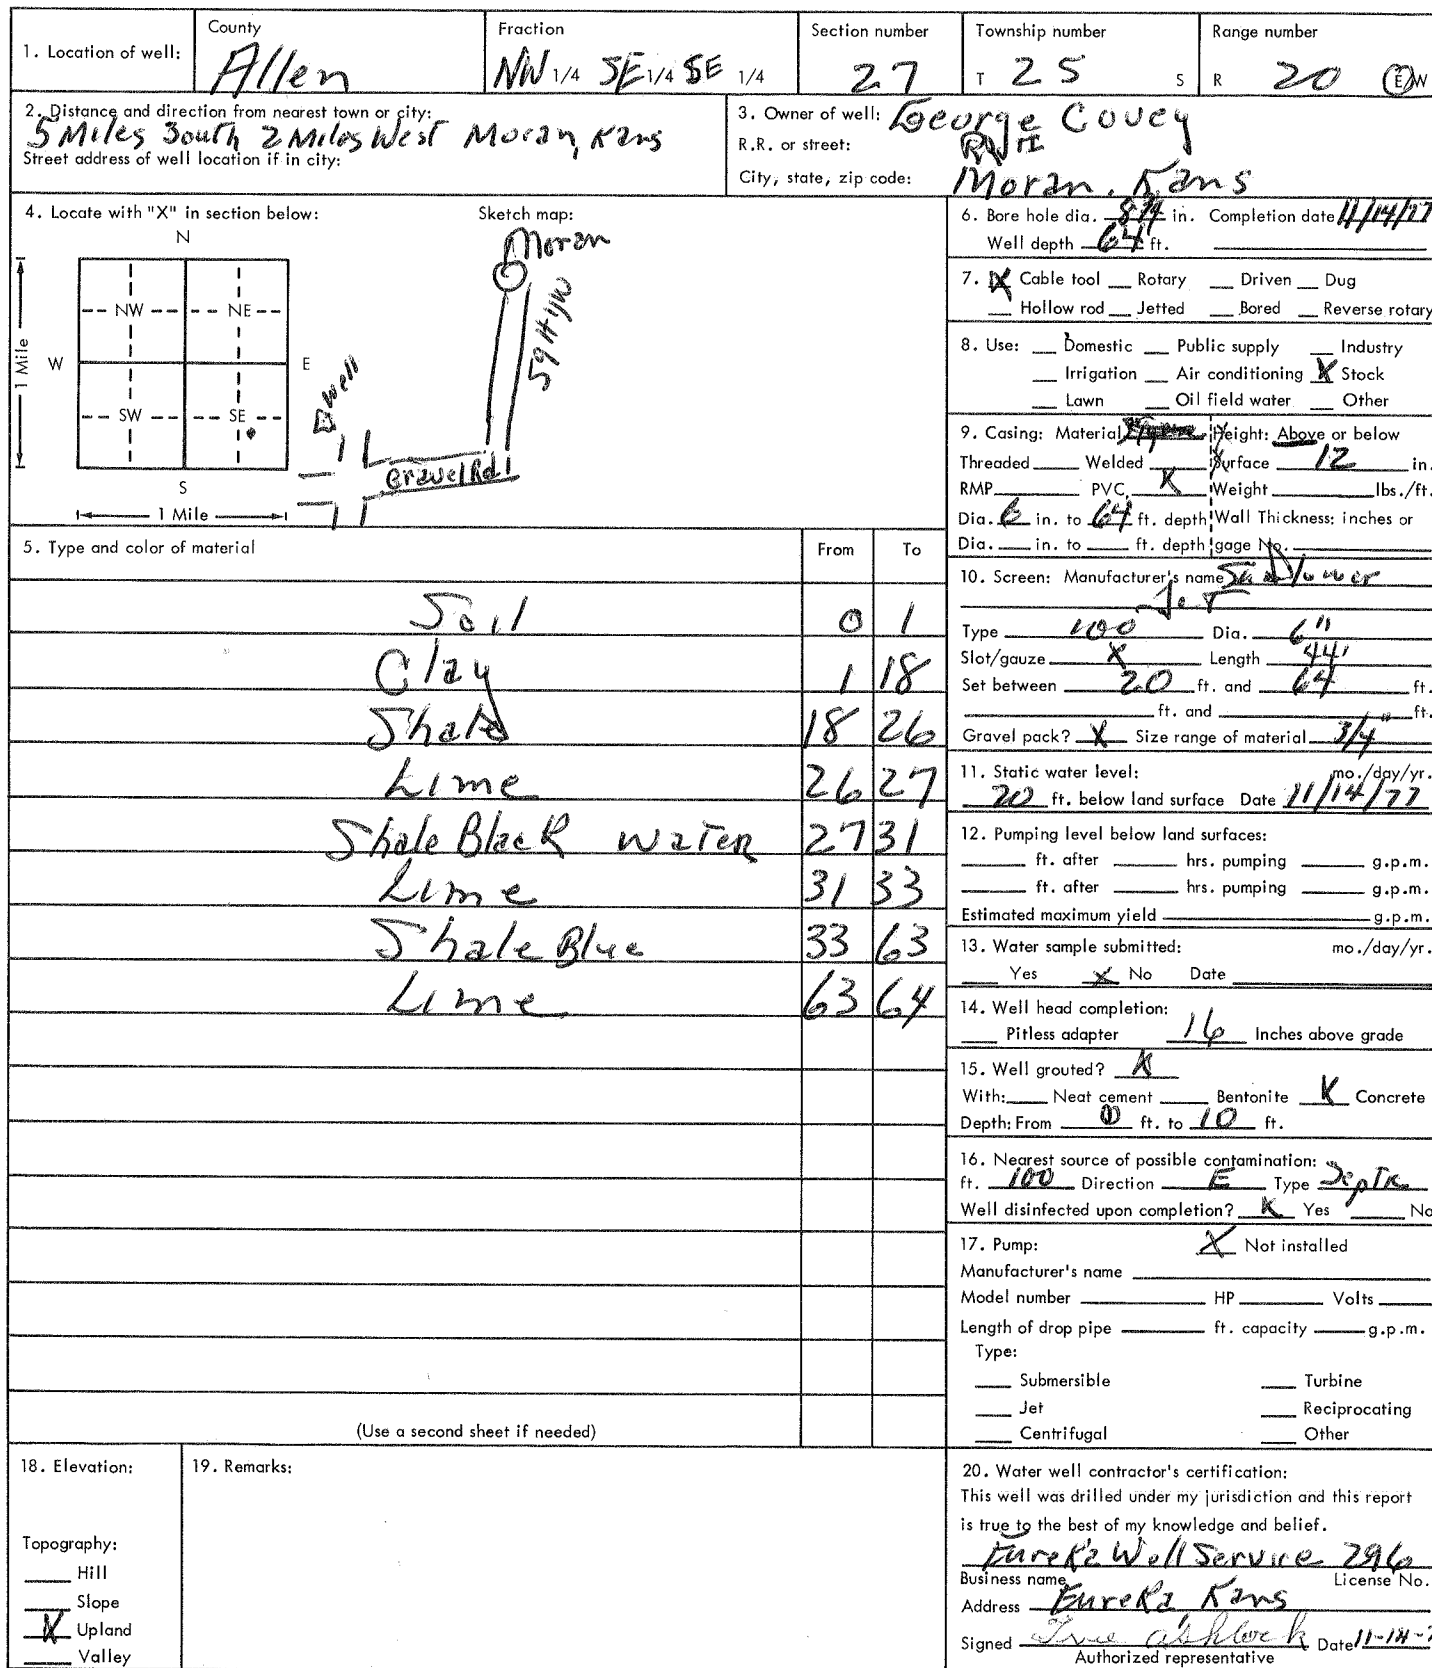 1. Location of well: County Allen Fraction NW 1/4 SE 1/4 SE 1/4 Section number 27 Township number T 25 S Range number R 20 E/W
2. Distance and direction from nearest town or city:
5 Miles South 2 Miles West Moran, Kans
Street address of well location if in city:
3. Owner of well: George Covey
R.R. or street:
City, state, zip code: Moran, Kans
4. Locate with "X" in section below:
N
NW NE
W E
SW SE
S
1 Mile
1 Mile
Sketch map:
Moran
59 Hyw
Well
Gravel Rd
5. Type and color of material From To
Soil 0 1
Clay 1 18
Shale 18 26
Lime 26 27
Shale Black Water 27 31
Lime 31 33
Shale Blue 33 63
Lime 63 64
(Use a second sheet if needed)
6. Bore hole dia. in. Completion date 11/14/77
Well depth 64 ft.
7. X Cable tool Rotary Driven Dug
Hollow rod Jetted Bored Reverse rotary
8. Use: Domestic Public supply Industry
Irrigation Air conditioning X Stock
Lawn Oil field water Other
9. Casing: Material Height: Above or below
Threaded Welded Surface 12 in.
RMP PVC X Weight lbs./ft.
Dia. 6 in. to 64 ft. depth Wall Thickness: inches or
Dia. in. to ft. depth gage No.
10. Screen: Manufacturer's name Sunflower
Jet
Type 100 Dia. 6"
Slot/gauze X Length 44'
Set between 20 ft. and 64 ft.
ft. and ft.
Gravel pack? X Size range of material 3/4"
11. Static water level: mo./day/yr.
20 ft. below land surface Date 11/14/77
12. Pumping level below land surfaces:
ft. after hrs. pumping g.p.m.
ft. after hrs. pumping g.p.m.
Estimated maximum yield g.p.m.
13. Water sample submitted: mo./day/yr.
Yes X No Date
14. Well head completion:
Pitless adapter 16 Inches above grade
15. Well grouted? X
With: Neat cement Bentonite X Concrete
Depth: From 0 ft. to 10 ft.
16. Nearest source of possible contamination:
ft. 100 Direction E Type Septic
Well disinfected upon completion? X Yes No
17. Pump: X Not installed
Manufacturer's name
Model number HP Volts
Length of drop pipe ft. capacity g.p.m.
Type:
Submersible Turbine
Jet Reciprocating
Centrifugal Other
18. Elevation:
Topography:
Hill
Slope
X Upland
Valley
19. Remarks:
20. Water well contractor's certification:
This well was drilled under my jurisdiction and this report
is true to the best of my knowledge and belief.
Eureka Well Service 296
Business name License No.
Address Eureka, Kans
Signed Ashlock Date 11-14-7
Authorized representative